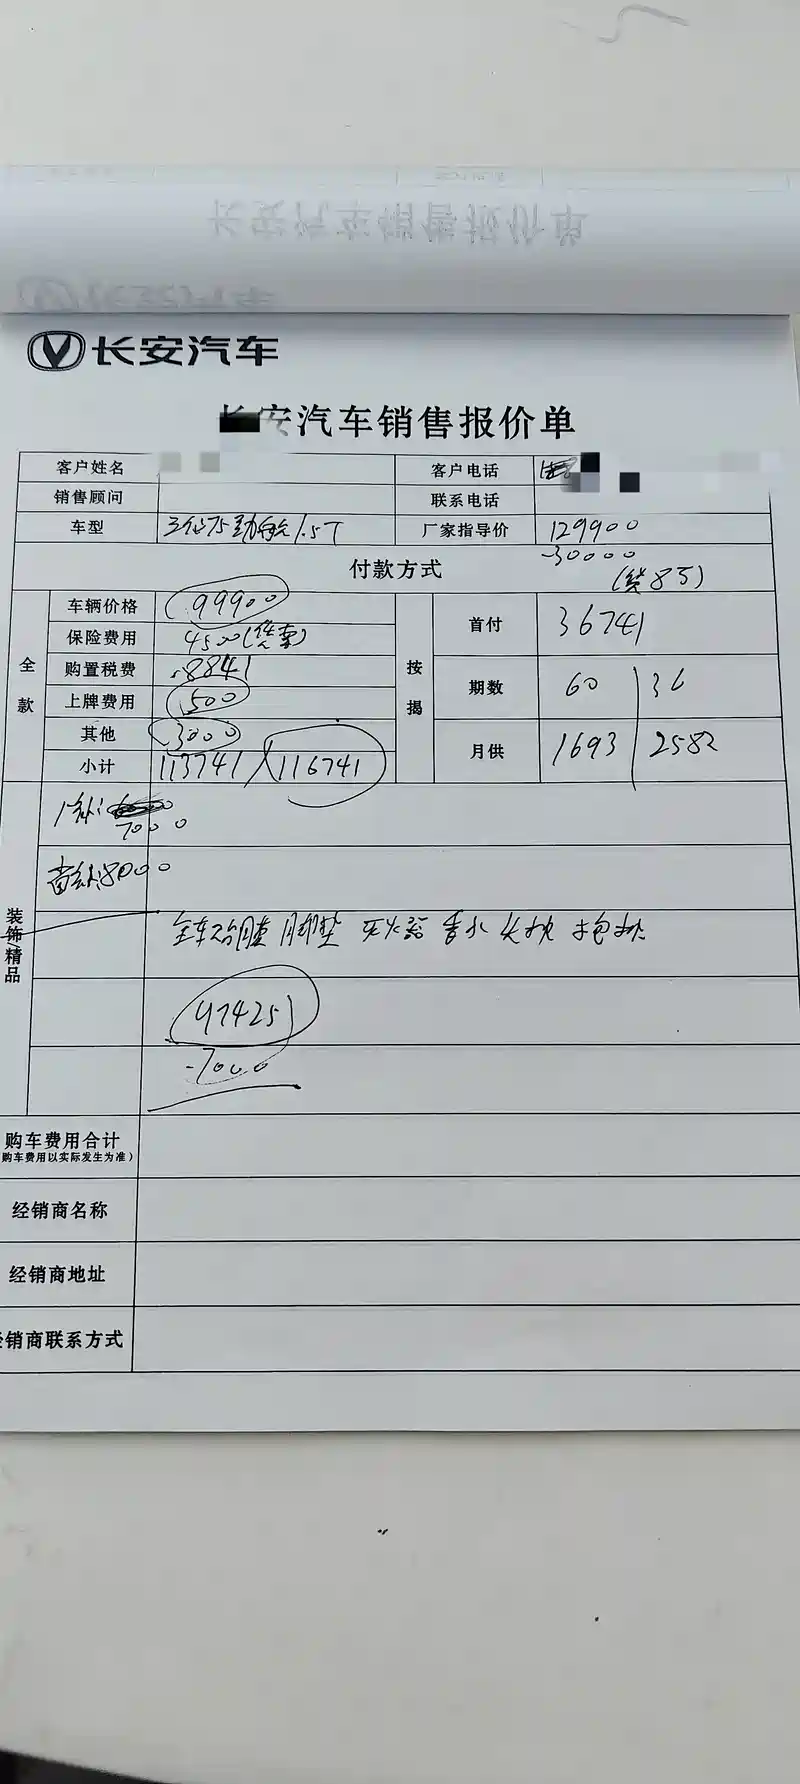 长安汽车
长安汽车销售报价单
客户姓名 客户电话
销售顾问 联系电话
车型 三代75 劲航 1.5T 厂家指导价 129900
-30000
付款方式 (贷8万)
全款 按揭
车辆价格 99900 首付 36741
保险费用 4500
购置税费 8841 期数 60 36
上牌费用 500
其他 3000 月供 1693 2582
小计 113741 116741
装饰精品
7000
8000
全车 脚垫 灭火器 香水 头枕 抱枕
97425
-7000
购车费用合计
购车费用以实际发生为准)
经销商名称
经销商地址
销商联系方式